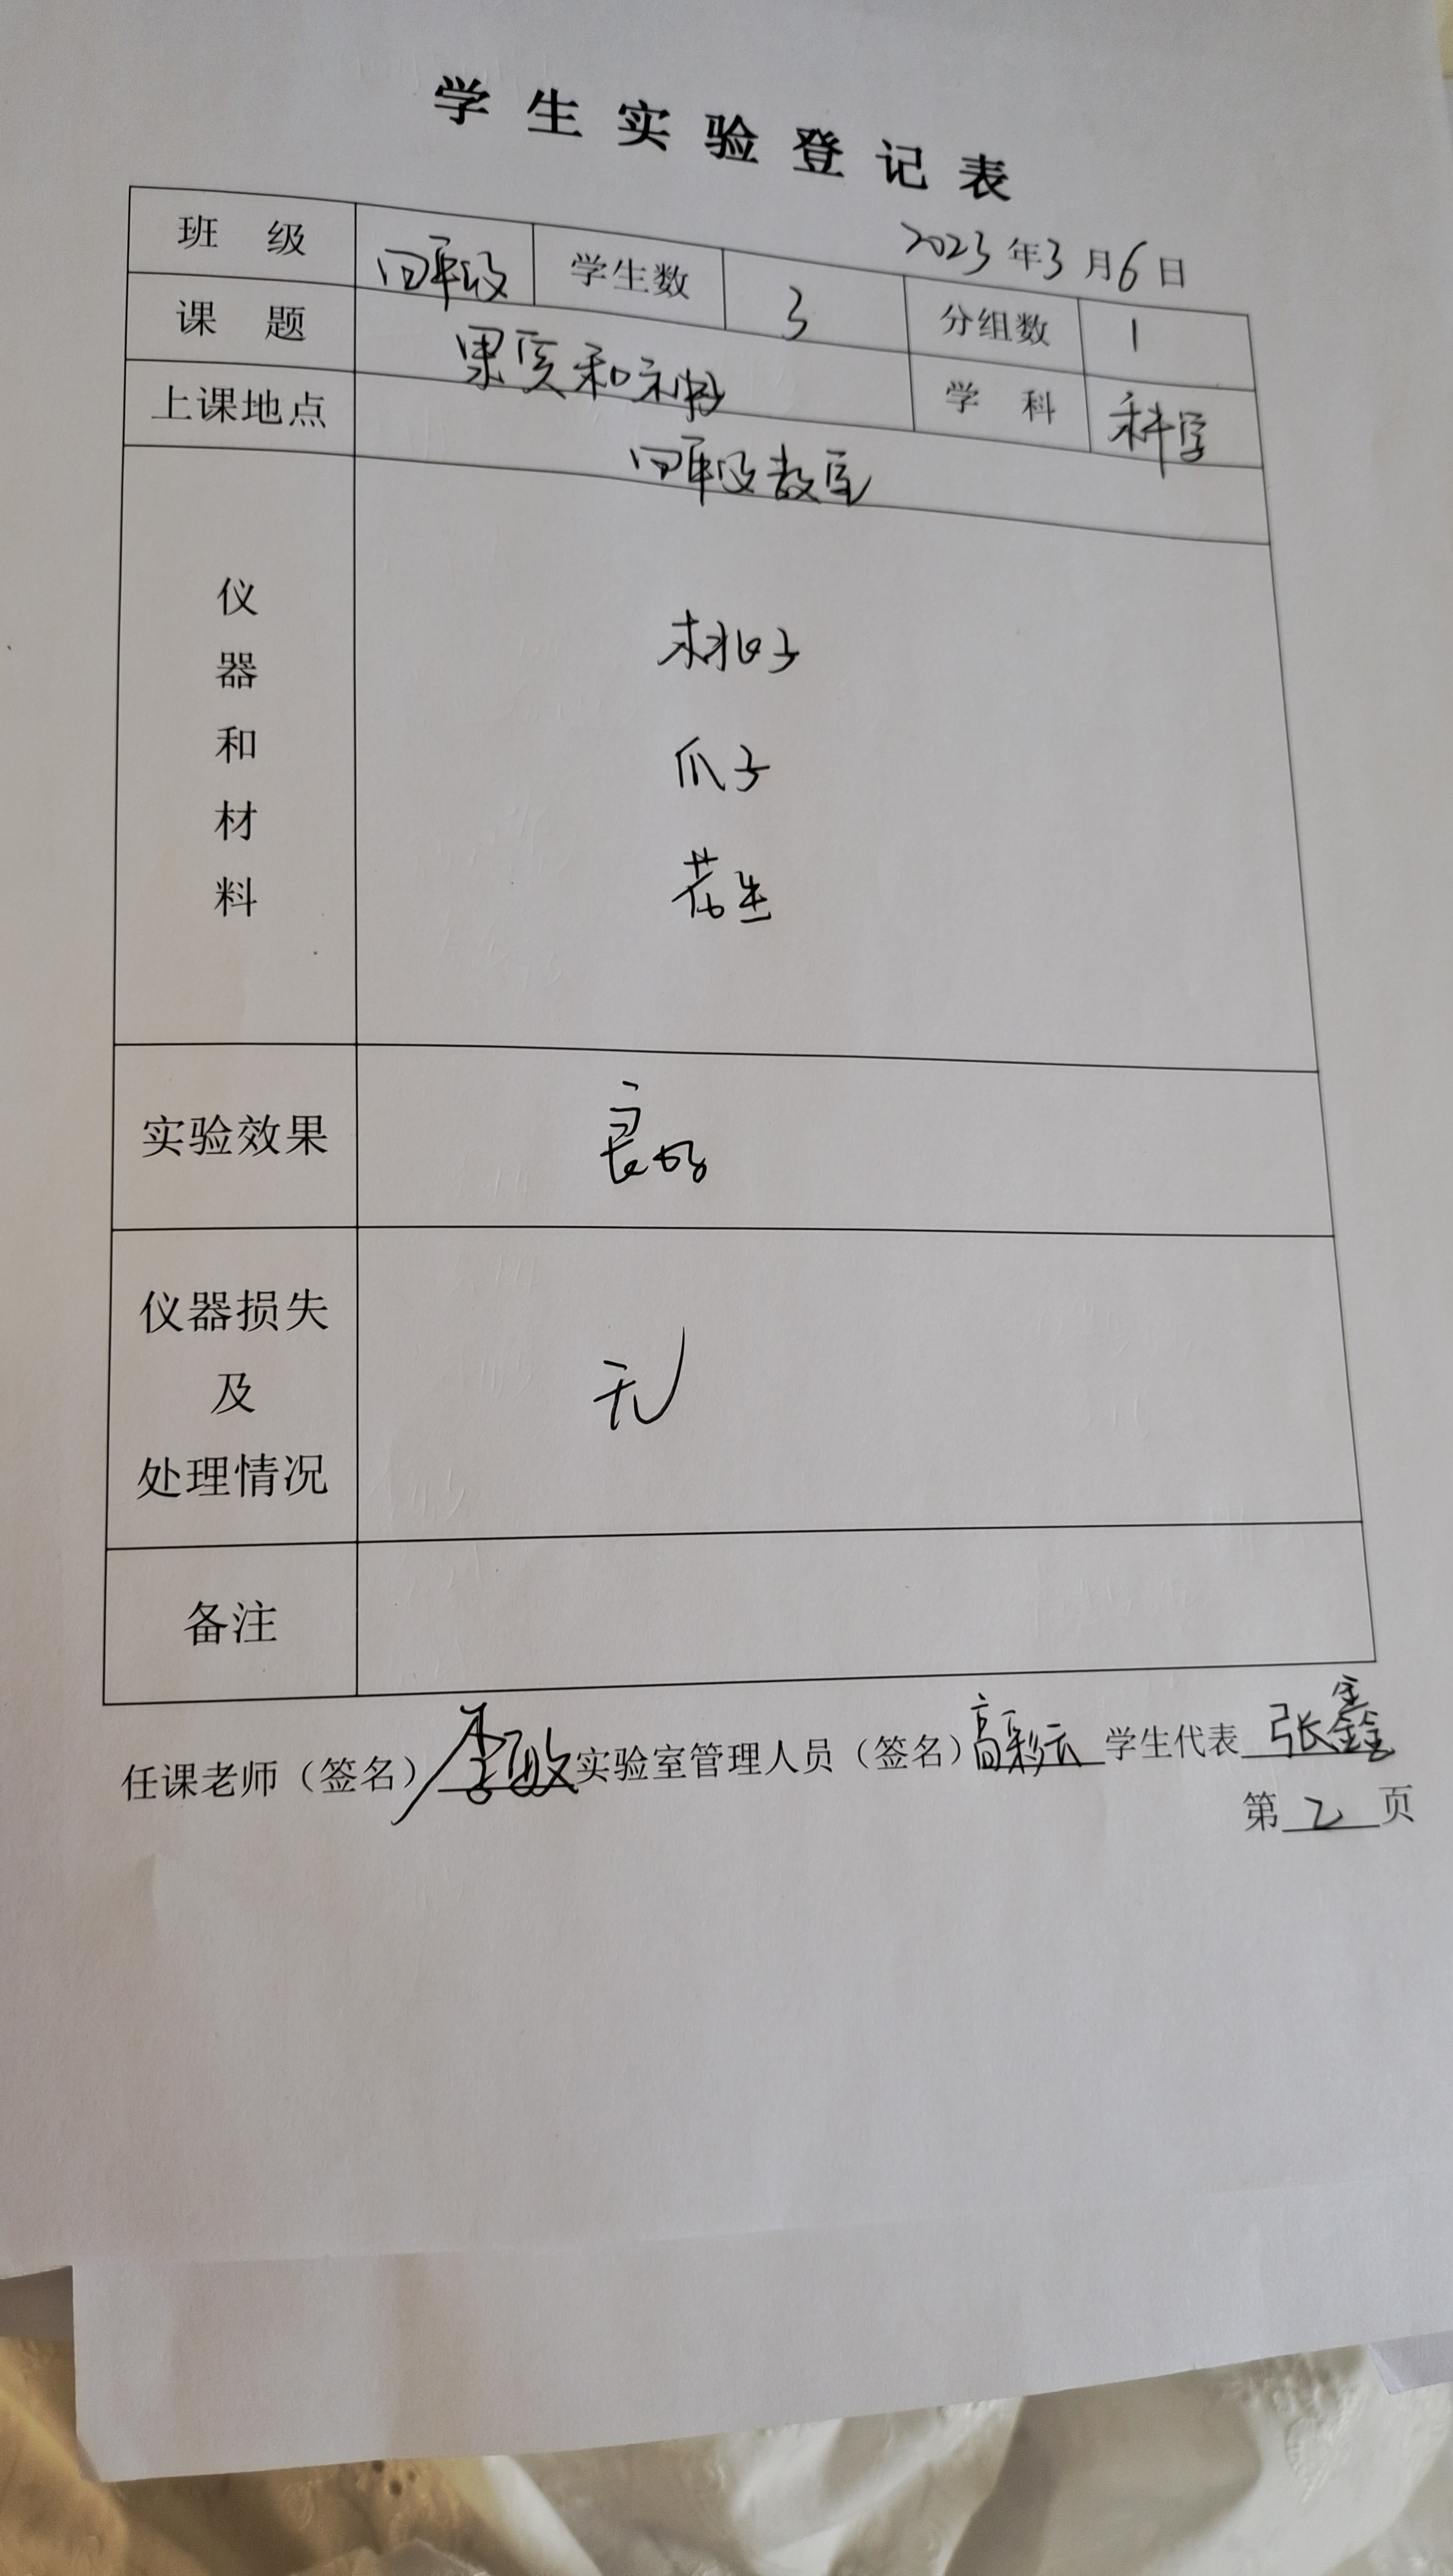 学生实验登记表
2023年3月6日
班级 四年级 学生数 3 分组数 1
课题 果实和种子 学科 科学
上课地点 四年级教室
仪器和材料
桃子
瓜子
花生
实验效果 良好
仪器损失
及
处理情况
无
备注
任课老师（签名）李敏 实验室管理人员（签名）高彩云 学生代表 张鑫
第 2 页